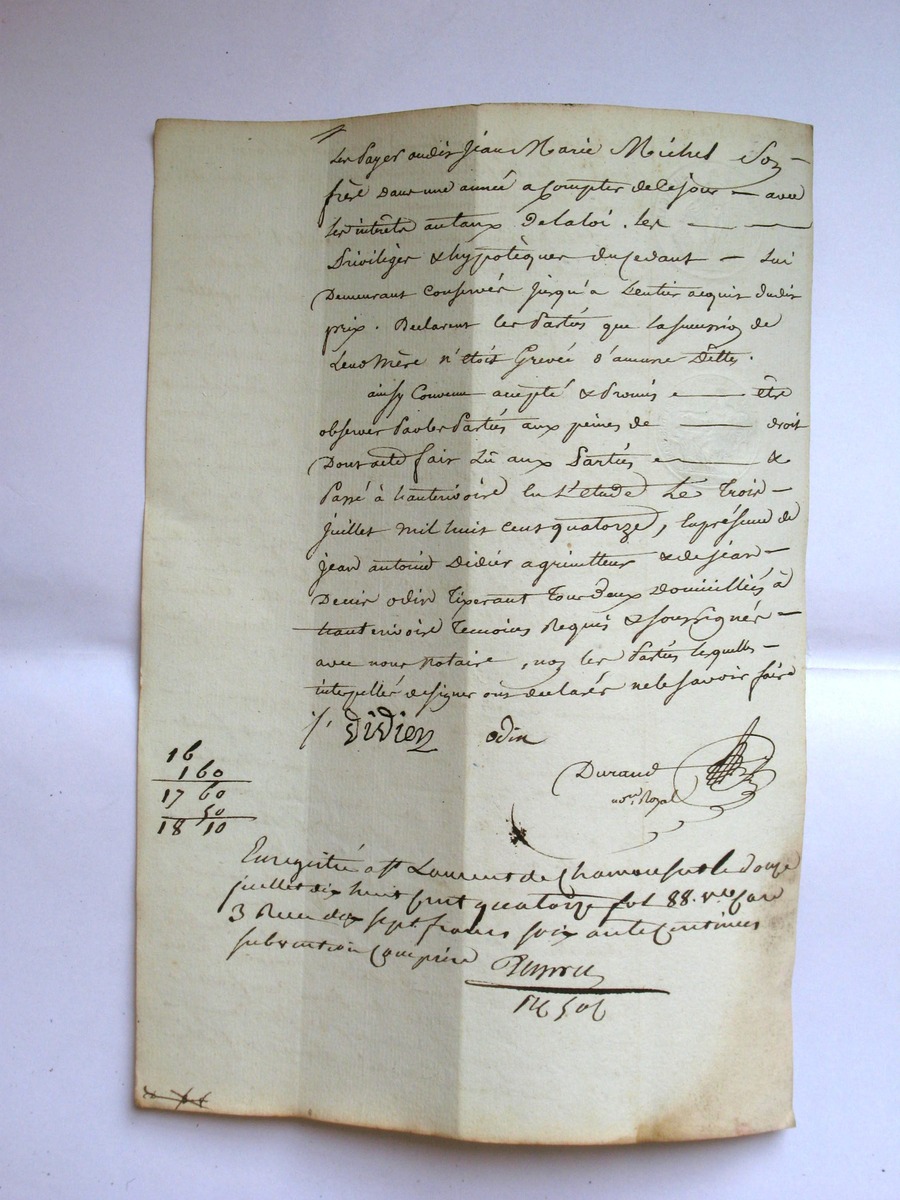 Les Payer audit Jean Marie Michel Son
frère dans une année a Compter de ce jour — avec
les intérêts au taux de la loi. Les — —
Privilèges & hypotèques du Cedant — Lui
Demeurant Conservés jusqu'a L'entier acquit dudit
prix. Declarent les Partiës que la sucession de
Leur Mère n'etoit Grevée d'aucune Dette.
ainsy Convenu accepté & Promis — être
observer Par les Partiës aux peines de — droit
Dont acte fait Lû aux Partiës — &
Passé à hauterivoire en L'etude Le Trois —
juillet mil huit cent quatorze, En présence de
jean antoine Didier agriculteur & de jean —
Denis odin Tixerant Tous deux domiciliés à
hauterivoire Temoins Requis & soussignés —
avec nous Notaire, non les Partiës lesquelles —
interpellés de signer ont declarés ne le savoir faire
Didier odin
Durand
no.re Royal
16
1 60
17 60
50
18 10
Enregistré a St Laurent de Chamousset le douze
juillet dix huit cent quatorze fol 88. v.o Case
3 Reçu dix sept francs soixante Centimes
subvention Comprise